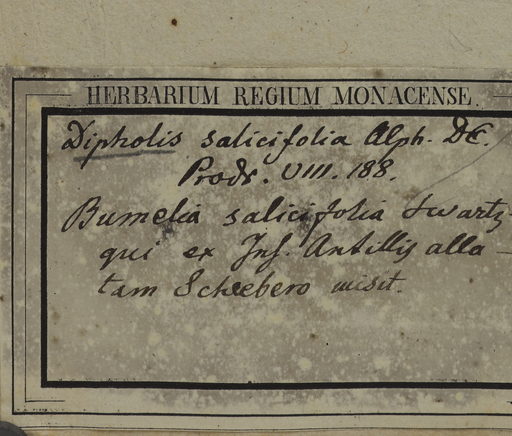 HERBARIUM REGIUM MONACENSE.
Dipholis salicifolia Alph. DC.
Prodr. VIII. 188.
Bumelia salicifolia Swartz
qui ex Ins. Antillis alla-
tam Schrebero misit.